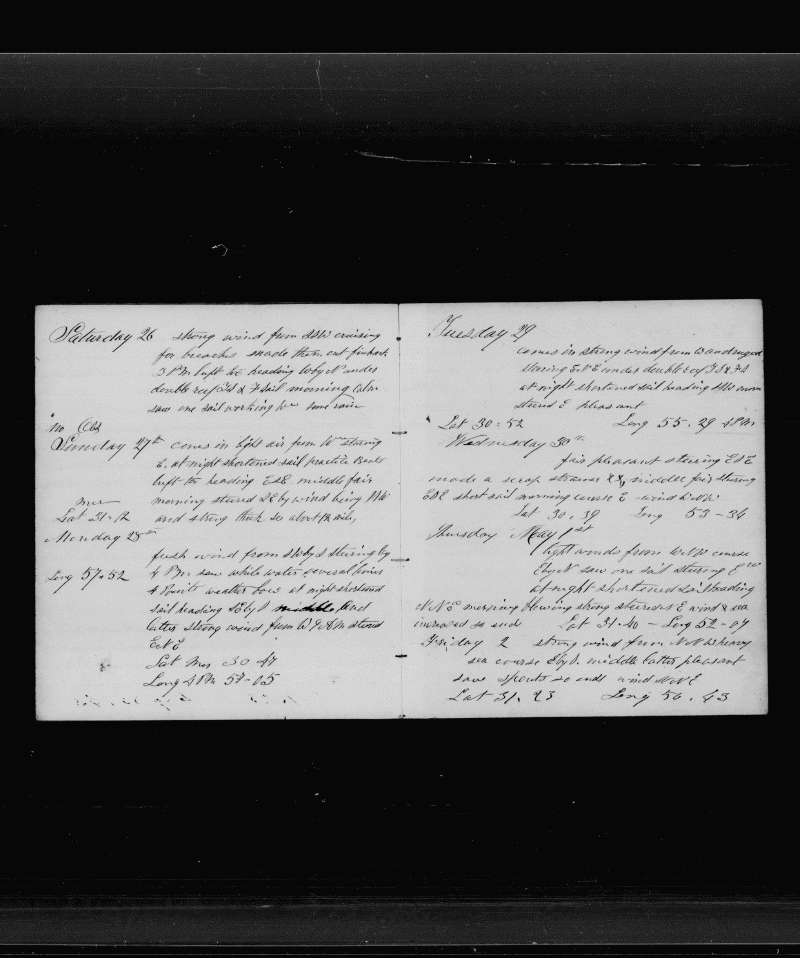 Saturday 26 strong wind from SSW cruising
for breaches made them out finback
3 PM luft to heading W by N under
double reef Ts & Fsail morning calm
saw one sail working some rain
no Obs
Sunday 27th comes in light air from W stering
E. at night shortened sail practice Boats
luft to heading ESE middle fair
morning steared SE by wind being
Lat 31-12 and strong thick so about 12 sails
Monday 28th
fresh wind from SW by S stering by
Long 57-52 4 PM saw white water several times
4 Points weather bow at night shortened
sail heading SE by S middle and
latter strong wind from W 7 AM steared
E
Lat Mer 30-47
Long 4 PM 58-05
Tuesday 29
comes in strong wind from W and ruged
staring ENE under double reef
at night shortened sail heading SW morn
steared E pleasant
Lat 30=52 Long 55.29 4 PM
Wednesday 30th
fair pleasant steering
made a scrap steamer middle fair stering
ESE short sail morning course E wind WNW
Lat 30.39 Long 53-34
Thursday May 1st
light winds from WNW course
E by N saw one sail stering
at night shortened sail heading
NNE morning blowing strong steared E wind & sea
increased so end Lat 31-40 - Long 52-07
Friday 2 strong wind from NNW heavy
sea course E by S. middle latter pleasant
saw spouts so ends wind NNE
Lat 31.23 Long 50.43